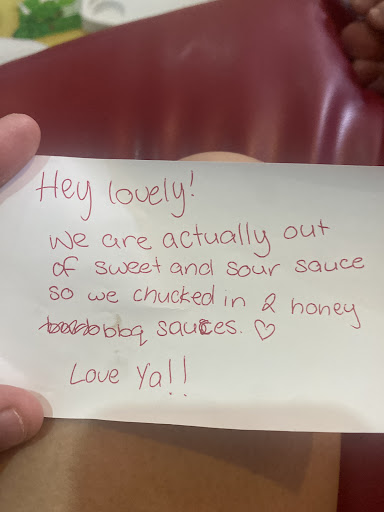 Hey lovely!
we are actually out
of sweet and sour sauce
so we chucked in 2 honey
bbq sauces. ♡
Love Ya!!